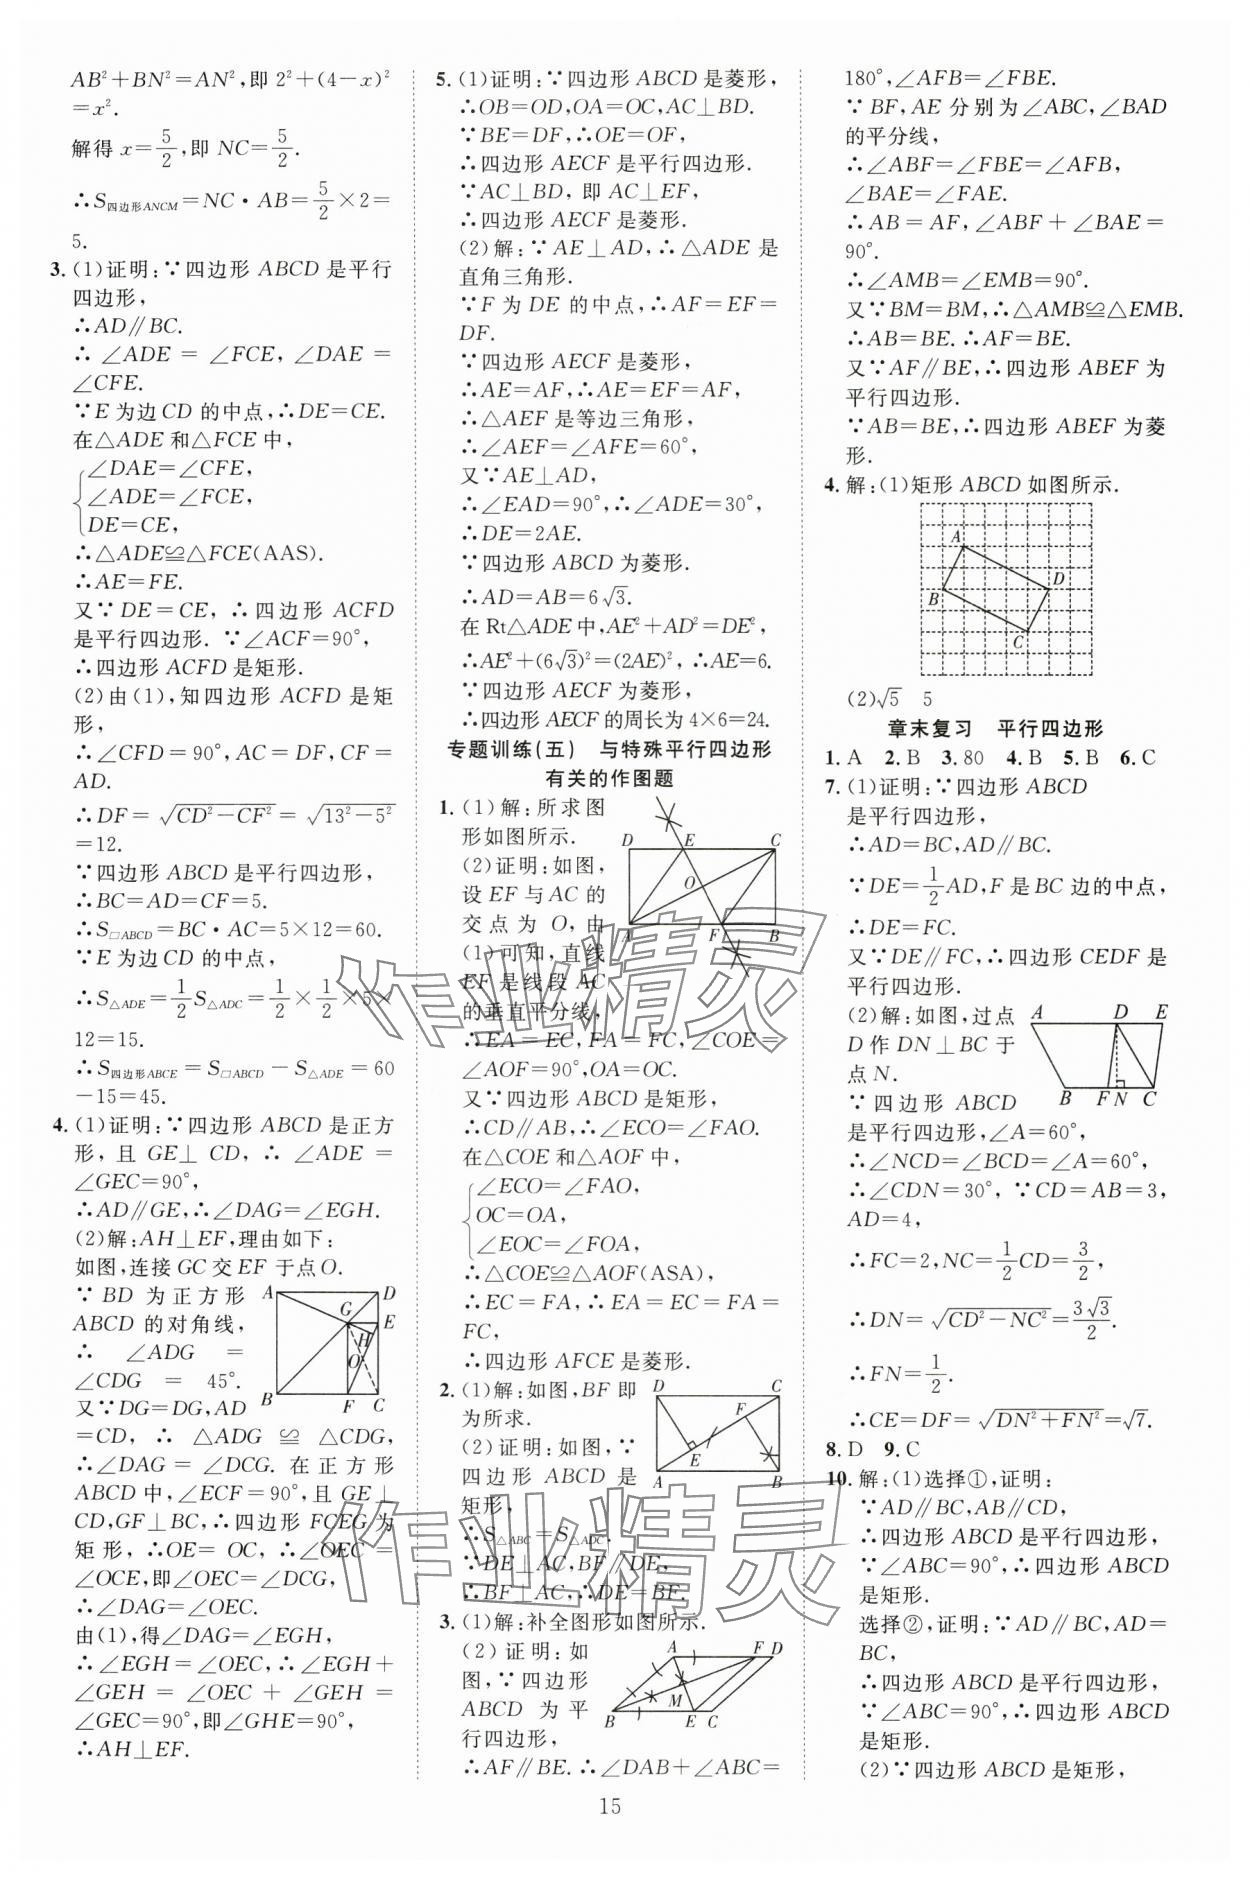 AB²+BN²=AN²,即 2²+(4-x)²
=x².
解得 x=5/2,即 NC=5/2.
∴S四边形ANCM=NC·AB=5/2×2=
5.
3. (1)证明:∵四边形 ABCD 是平行
四边形,
∴AD∥BC.
∴∠ADE=∠FCE,∠DAE=
∠CFE.
∵E 为边 CD 的中点,∴DE=CE.
在△ADE 和△FCE 中,
∠DAE=∠CFE,
∠ADE=∠FCE,
DE=CE,
∴△ADE≌△FCE(AAS).
∴AE=FE.
又∵DE=CE,∴四边形 ACFD
是平行四边形.∵∠ACF=90°,
∴四边形 ACFD 是矩形.
(2)由(1),知四边形 ACFD 是矩
形,
∴∠CFD=90°,AC=DF,CF=
AD.
∴DF=√(CD²-CF²)=√(13²-5²)
=12.
∵四边形 ABCD 是平行四边形,
∴BC=AD=CF=5.
∴S□ABCD=BC·AC=5×12=60.
∵E 为边 CD 的中点,
∴S△ADE=1/2S△ADC=1/2×1/2×5×
12=15.
∴S四边形ABCE=S□ABCD-S△ADE=60
-15=45.
4. (1)证明:∵四边形 ABCD 是正方
形,且 GE⊥CD,∴∠ADE=
∠GEC=90°,
∴AD∥GE,∴∠DAG=∠EGH.
(2)解:AH⊥EF,理由如下:
如图,连接 GC 交 EF 于点 O.
∵BD 为正方形
ABCD 的对角线,
∴∠ADG=
∠CDG=45°.
又∵DG=DG,AD
A D G E H O B F C
=CD,∴△ADG≌△CDG,
∴∠DAG=∠DCG.在正方形
ABCD 中,∠ECF=90°,且 GE⊥
CD,GF⊥BC,∴四边形 FCEG 为
矩形,∴OE=OC,∴∠OEC=
∠OCE,即∠OEC=∠DCG,
∴∠DAG=∠OEC.
由(1),得∠DAG=∠EGH,
∴∠EGH=∠OEC,∴∠EGH+
∠GEH=∠OEC+∠GEH=
∠GEC=90°,即∠GHE=90°,
∴AH⊥EF.
5. (1)证明:∵四边形 ABCD 是菱形,
∴OB=OD,OA=OC,AC⊥BD.
∵BE=DF,∴OE=OF,
∴四边形 AECF 是平行四边形.
∵AC⊥BD,即 AC⊥EF,
∴四边形 AECF 是菱形.
(2)解:∵AE⊥AD,∴△ADE 是
直角三角形.
∵F 为 DE 的中点,∴AF=EF=
DF.
∵四边形 AECF 是菱形,
∴AE=AF,∴AE=EF=AF,
∴△AEF 是等边三角形,
∴∠AEF=∠AFE=60°,
又∵AE⊥AD,
∴∠EAD=90°,∴∠ADE=30°,
∴DE=2AE.
∵四边形 ABCD 为菱形,
∴AD=AB=6√3.
在 Rt△ADE 中,AE²+AD²=DE²,
∴AE²+(6√3)²=(2AE)²,∴AE=6.
∵四边形 AECF 为菱形,
∴四边形 AECF 的周长为 4×6=24.
专题训练(五) 与特殊平行四边形
有关的作图题
1. (1)解:所求图
形如图所示.
(2)证明:如图,
设 EF 与 AC 的
交点为 O,由
(1)可知,直线
EF 是线段 AC
的垂直平分线,
D E C O A F B
∴EA=EC,FA=FC,∠COE=
∠AOF=90°,OA=OC.
又∵四边形 ABCD 是矩形,
∴CD∥AB,∴∠ECO=∠FAO.
在△COE 和△AOF 中,
∠ECO=∠FAO,
OC=OA,
∠EOC=∠FOA,
∴△COE≌△AOF(ASA),
∴EC=FA,∴EA=EC=FA=
FC,
∴四边形 AFCE 是菱形.
2. (1)解:如图,BF 即
为所求.
(2)证明:如图,∵
四边形 ABCD 是
矩形,
D C F E A B
∴S△ABC=S△ADC.
∵DE⊥AC,BF∥DE,
∴BF⊥AC,∴DE=BF.
3. (1)解:补全图形如图所示.
(2)证明:如
图,∵四边形
ABCD 为平
行四边形,
A F D M B E C
∴AF∥BE.∴∠DAB+∠ABC=
180°,∠AFB=∠FBE.
∵BF,AE 分别为∠ABC,∠BAD
的平分线,
∴∠ABF=∠FBE=∠AFB,
∠BAE=∠FAE.
∴AB=AF,∠ABF+∠BAE=
90°.
∴∠AMB=∠EMB=90°.
又∵BM=BM,∴△AMB≌△EMB.
∴AB=BE.∴AF=BE.
又∵AF∥BE,∴四边形 ABEF 为
平行四边形.
∵AB=BE,∴四边形 ABEF 为菱
形.
4. 解:(1)矩形 ABCD 如图所示.
A D B C
(2)√5 5
章末复习 平行四边形
1. A 2. B 3. 80 4. B 5. B 6. C
7. (1)证明:∵四边形 ABCD
是平行四边形,
∴AD=BC,AD∥BC.
∵DE=1/2AD,F 是 BC 边的中点,
∴DE=FC.
又∵DE∥FC,∴四边形 CEDF 是
平行四边形.
(2)解:如图,过点
D 作 DN⊥BC 于
点 N.
∵四边形 ABCD
A D E B F N C
是平行四边形,∠A=60°,
∴∠NCD=∠BCD=∠A=60°,
∴∠CDN=30°,∵CD=AB=3,
AD=4,
∴FC=2,NC=1/2CD=3/2,
∴DN=√(CD²-NC²)=3√3/2.
∴FN=1/2.
∴CE=DF=√(DN²+FN²)=√7.
8. D 9. C
10. 解:(1)选择①,证明:
∵AD∥BC,AB∥CD,
∴四边形 ABCD 是平行四边形,
∵∠ABC=90°,∴四边形 ABCD
是矩形.
选择②,证明:∵AD∥BC,AD=
BC,
∴四边形 ABCD 是平行四边形,
∵∠ABC=90°,∴四边形 ABCD
是矩形.
(2)∵四边形 ABCD 是矩形,
15
作业精灵
作业精灵